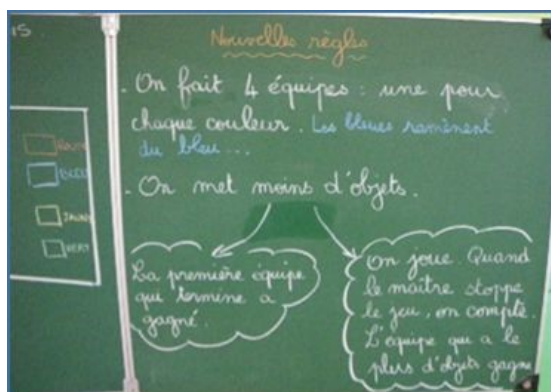 IS.
ROUGE
BLEU
JAUNE
VERT
Nouvelles règles
. On fait 4 équipes : une pour
chaque couleur. Les bleues ramènent
du bleu...
. On met moins d'objets.
La première équipe
qui termine a
gagné.
On joue. Quand
le maître stoppe
le jeu, on compte.
L'équipe qui a le
plus d'objets gagne